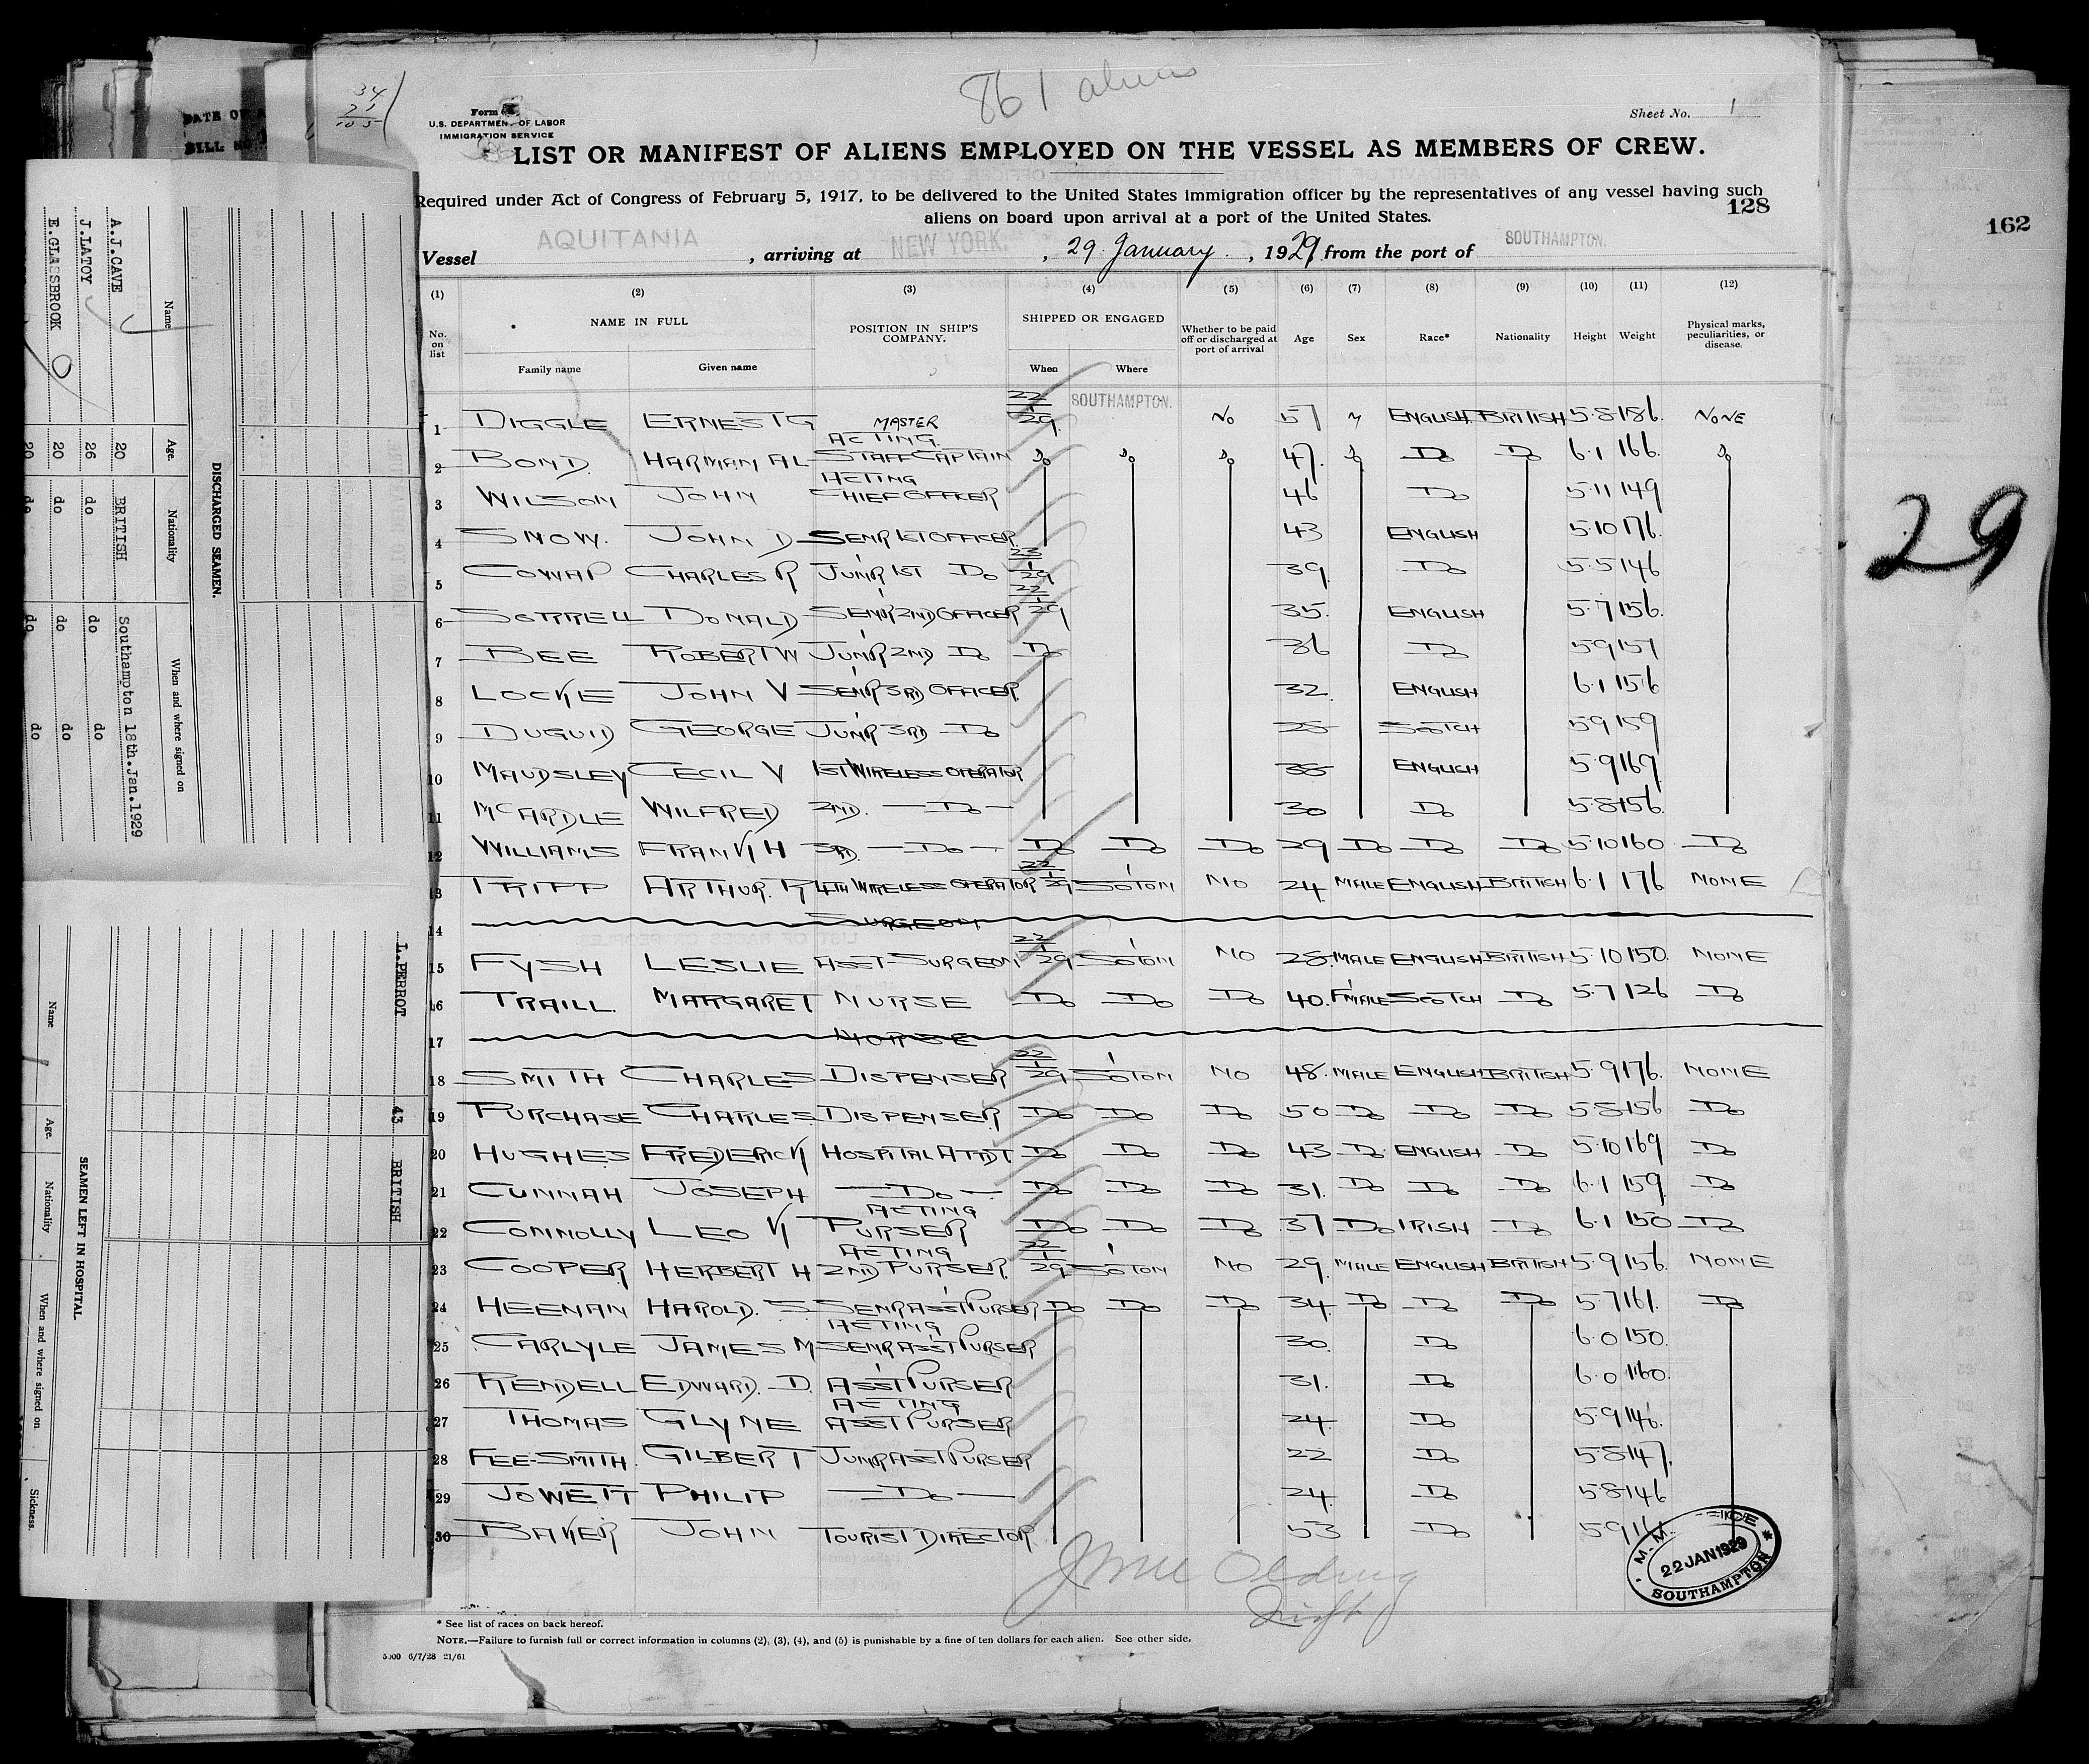 34
861 aliens
Form
U.S. DEPARTMENT OF LABOR
IMMIGRATION SERVICE
Sheet No. 1
LIST OR MANIFEST OF ALIENS EMPLOYED ON THE VESSEL AS MEMBERS OF CREW.
Required under Act of Congress of February 5, 1917, to be delivered to the United States immigration officer by the representatives of any vessel having such
aliens on board upon arrival at a port of the United States.
128
Vessel AQUITANIA, arriving at NEW YORK., 29 January., 1929, from the port of SOUTHAMPTON.
(1) (2) (3) (4) (5) (6) (7) (8) (9) (10) (11) (12)
No. on list NAME IN FULL Family name Given name POSITION IN SHIP'S COMPANY. SHIPPED OR ENGAGED When Where Whether to be paid off or discharged at port of arrival Age Sex Race* Nationality Height Weight Physical marks, peculiarities, or disease.
1 DIGGLE ERNEST G MASTER 22/1/29 SOUTHAMPTON. NO 57 M ENGLISH BRITISH 5.8 186 NONE
2 BOND. HARMAN A L ACTING STAFF CAPTAIN Do Do Do 47 Do Do Do 6.1 166 Do
3 WILSON JOHN ACTING CHIEF OFFICER 46 Do 5.11 149
4 SNOW. JOHN D SENR 1ST OFFICER 43 ENGLISH 5.10 176
5 COWAP CHARLES R JUNR 1ST Do 23/1/29 39 Do 5.5 146
6 SORRELL DONALD SENR 2ND OFFICER 22/1/29 35 ENGLISH 5.7 156
7 BEE ROBERT W JUNR 2ND Do Do 36 Do 5.9 157
8 LOCKE JOHN V SENR 3RD OFFICER 32 ENGLISH 6.1 156
9 DUGUID GEORGE JUNR 3RD Do 28 SCOTCH 5.9 159
10 MAUDSLEY CECIL V 1ST WIRELESS OPERATOR 38 ENGLISH 5.9 169
11 McARDLE WILFRED 2ND. Do 30 Do 5.8 156
12 WILLIAMS FRANK H 3RD. Do Do Do Do 29 Do Do Do 5.10 160 Do
13 TRIPP ARTHUR R 4TH WIRELESS OPERATOR 22/1/29 SO'TON NO 24 MALE ENGLISH BRITISH 6.1 176 NONE
14 SURGEON
15 FYSH LESLIE ASST SURGEON 22/1/29 SO'TON NO 28 MALE ENGLISH BRITISH 5.10 150 NONE
16 TRAILL. MARGARET NURSE Do Do Do 40 F'MALE SCOTCH Do 5.7 126 Do
17 NURSE
18 SMITH CHARLES DISPENSER 22/1/29 SO'TON NO 48 MALE ENGLISH BRITISH 5.9 176 NONE
19 PURCHASE CHARLES DISPENSER Do Do Do 50 Do Do Do 5.8 156 Do
20 HUGHES FREDERICK HOSPITAL ATTDT Do Do Do 43 Do ENGLISH Do 5.10 169 Do
21 CUNNAH JOSEPH Do Do Do Do 31 Do Do Do 6.1 159 Do
22 CONNOLLY LEO K ACTING PURSER Do Do Do 37 Do IRISH Do 6.1 150 Do
23 COOPER HERBERT H ACTING 2ND PURSER 22/1/29 SO'TON NO 29 MALE ENGLISH BRITISH 5.9 156 NONE
24 HEENAN HAROLD. S. SENR ASST PURSER Do Do Do 34 Do Do Do 5.7 161 Do
25 CARLYLE JAMES M ACTING SENR ASST PURSER 30 Do 6.0 150
26 RENDELL EDWARD. D. ASST PURSER 31 Do 6.0 160
27 THOMAS GLYNE ACTING ASST PURSER 24 Do 5.9 146
28 FEE-SMITH. GILBERT T JUNR ASST PURSER 22 Do 5.8 147
29 JOWETT PHILIP Do 24 Do 5.8 146
30 BAKER JOHN TOURIST DIRECTOR 53 Do 5.9 161
22 JAN 1929
SOUTHAMPTON
* See list of races on back hereof.
NOTE.—Failure to furnish full or correct information in columns (2), (3), (4), and (5) is punishable by a fine of ten dollars for each alien. See other side.
6/7/28 21/61
162
29
DISCHARGED SEAMEN.
Name Age. Nationality When and where signed on
A.J.CAVE 20 BRITISH Southampton 18th.Jan.1929
J.LATOY 26 do do do
E.GLASSBROOK 20 do do do
20 do do do
SEAMEN LEFT IN HOSPITAL
Name Age. Nationality When and where signed on Sickness.
L.PERROT 43 BRITISH